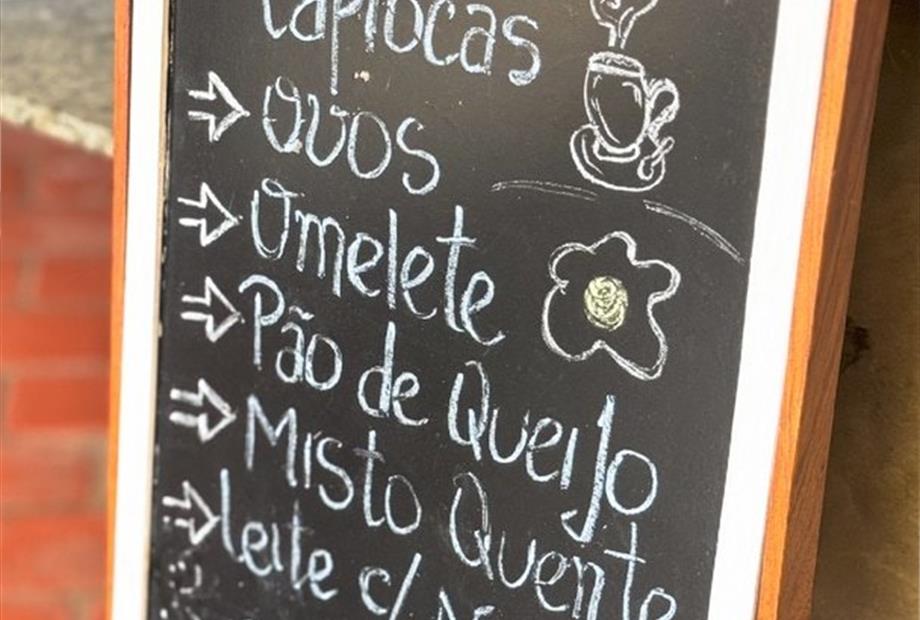 tapiocas
Ovos
Omelete
Pão de Queijo
Misto Quente
leite c/